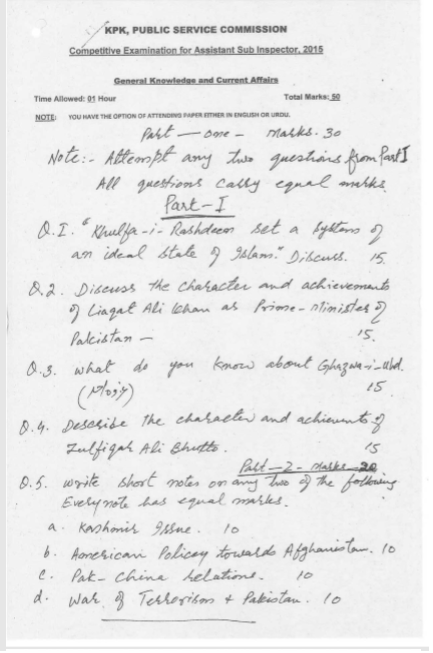 KPK, PUBLIC SERVICE COMMISSION
Competitive Examination for Assistant Sub Inspector, 2015
General Knowledge and Current Affairs
Time Allowed: 01 Hour Total Marks: 50
NOTE: YOU HAVE THE OPTION OF ATTENDING PAPER EITHER IN ENGLISH OR URDU.
Part — one – marks. 30
Note:- Attempt any two questions from Part I
All questions carry equal marks.
Part – I
Q.I. "Khulfa-i-Rashdeen set a system of
an ideal state of Islam." Discuss. 15
Q.2. Discuss the character and achievements
of Liaqat Ali Khan as Prime-Minister of
Pakistan – 15.
Q.3. what do you know about Ghazwa-i-Uhd.
15
Q.4. Describe the character and achieuments of
Zulfiqar Ali Bhutto. 15
Part – 2 – marks 20
Q.5. write short notes on any two of the following
Every note has equal marks.
a. Kashmir Issue. 10
b. American Policy towards Afghanistan. 10
c. Pak – China relations. 10
d. War of Terrorism + Pakistan. 10